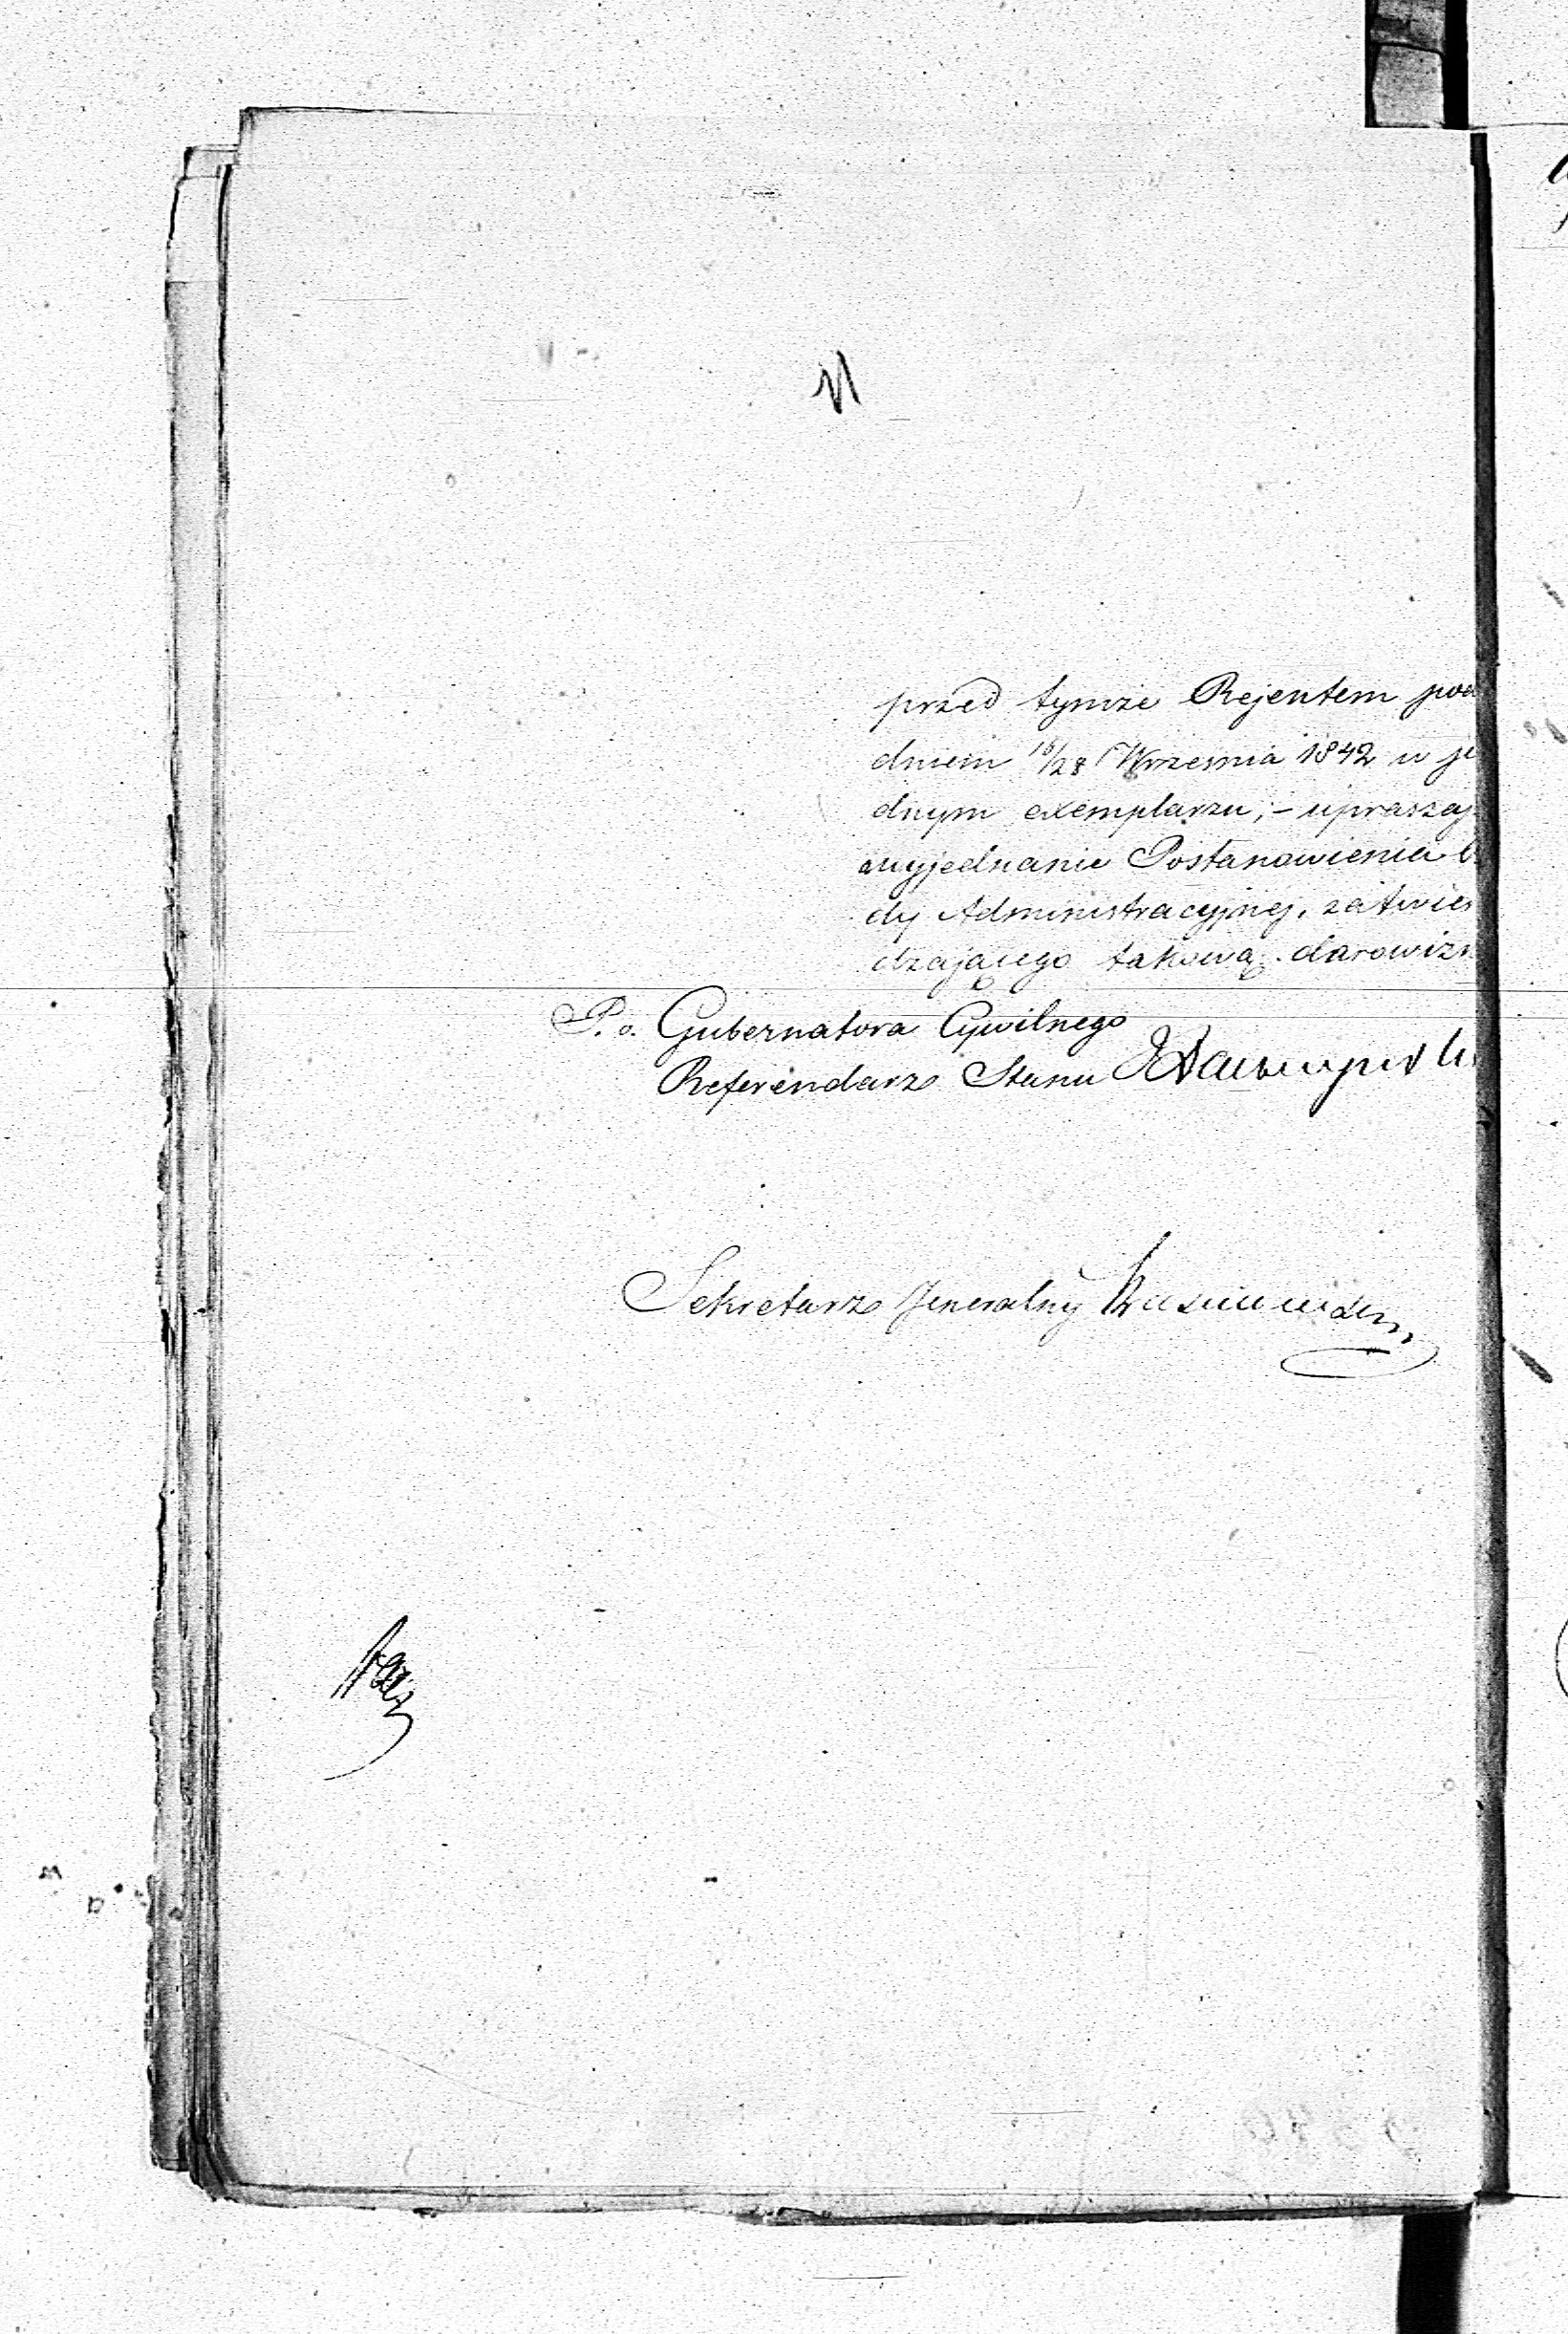 przed tymże Rejentem pod
dniem 16/28 Września 1842 w je
dnym exemplarzu, – uprasza
wyjednanie Postanowienia
dy Administracyjnej, zatwier
dzającego takową darowizn
P. o. Gubernatora Cywilnego
Referendarz Stanu
Sekretarz Jeneralny